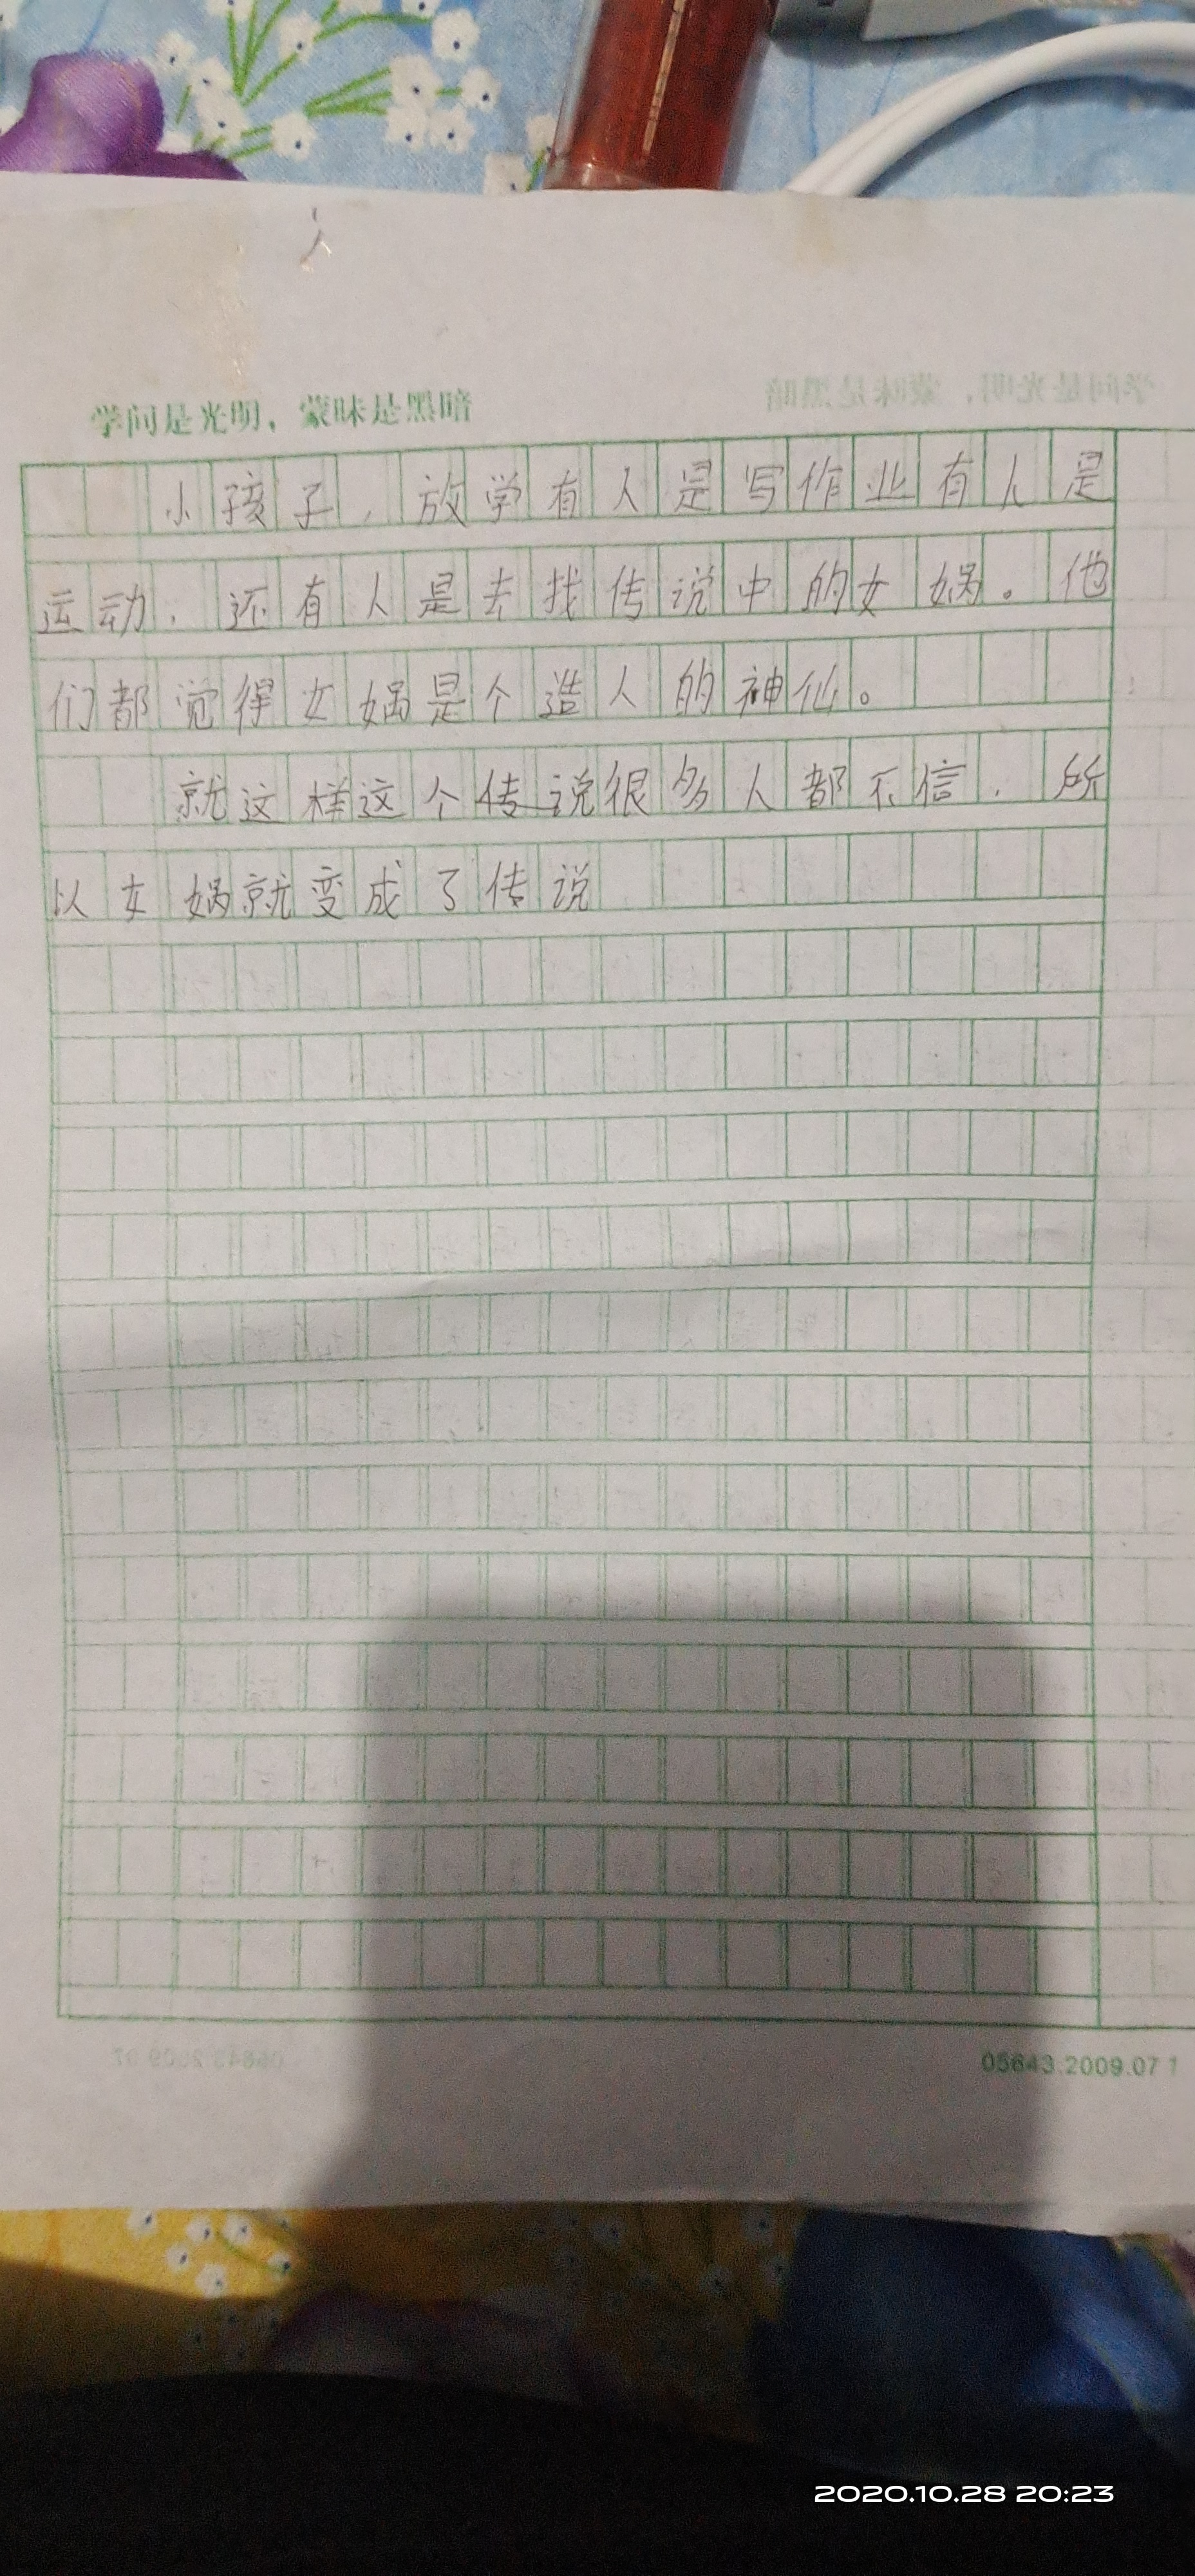 学问是光明，蒙昧是黑暗
小孩子，放学有人是写作业有人是
运动，还有人是去找传说中的女娲。他
们都觉得女娲是个造人的神仙。
就这样这个传说很多人都不信，所
以女娲就变成了传说
05643.2009.07
2020.10.28 20:23